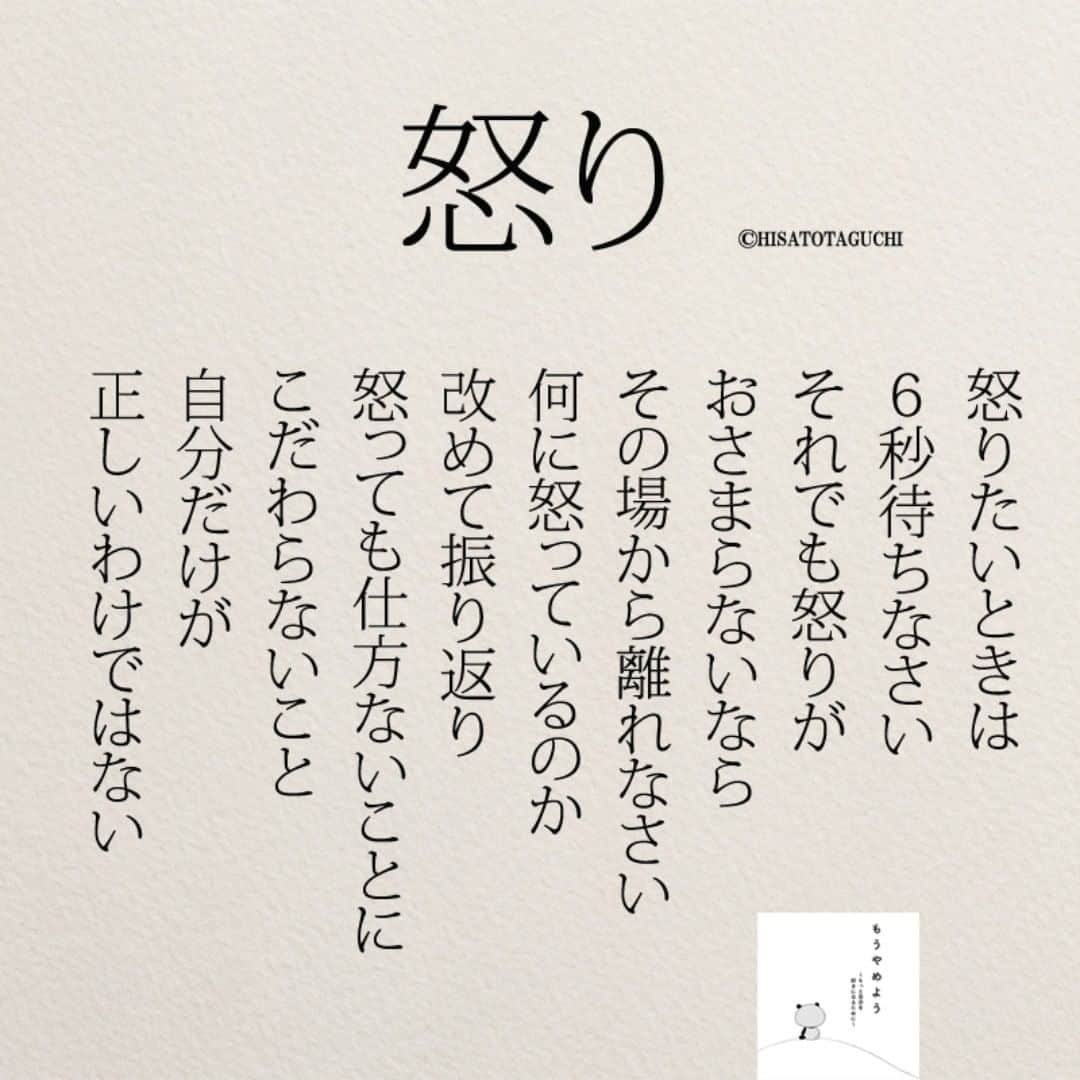 怒り
©HISATOTAGUCHI
怒りたいときは
6秒待ちなさい
それでも怒りが
おさまらないなら
その場から離れなさい
何に怒っているのか
改めて振り返り
怒っても仕方ないことに
こだわらないこと
自分だけが
正しいわけではない
もうやめよう
～もっと自分を
好きになるために～